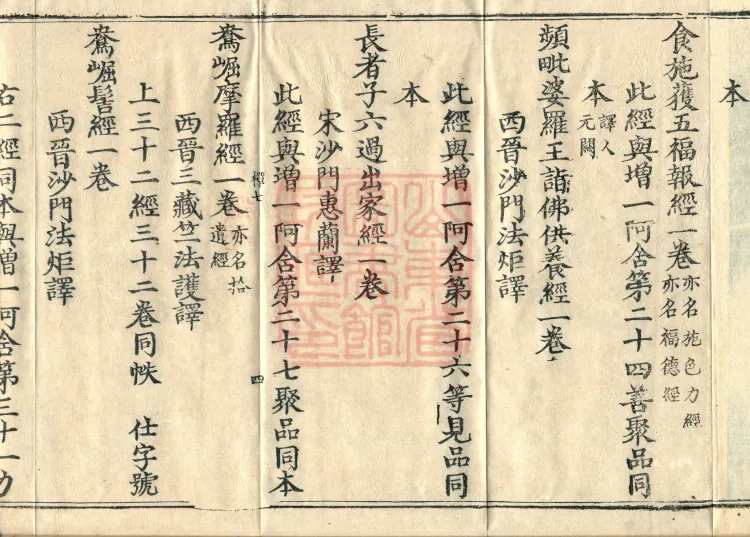 本
食施獲五福報經一卷亦名施色力經亦名福德經
此經與增一阿含第二十四善聚品同
本譯人元闕
頻毗婆羅王詣佛供養經一卷
西晉沙門法炬譯
此經與增一阿含第二十六等見品同
本
長者子六過出家經一卷
宋沙門惠蘭譯
此經與增一阿含第二十七聚品同本
權七 四
鴦崛摩羅經一卷亦名指
西晉三藏竺法護譯
上三十二經三十二卷同帙 仕字號
鴦崛髻經一卷
西晉沙門法炬譯
右二經同本與增一阿含第三十一力